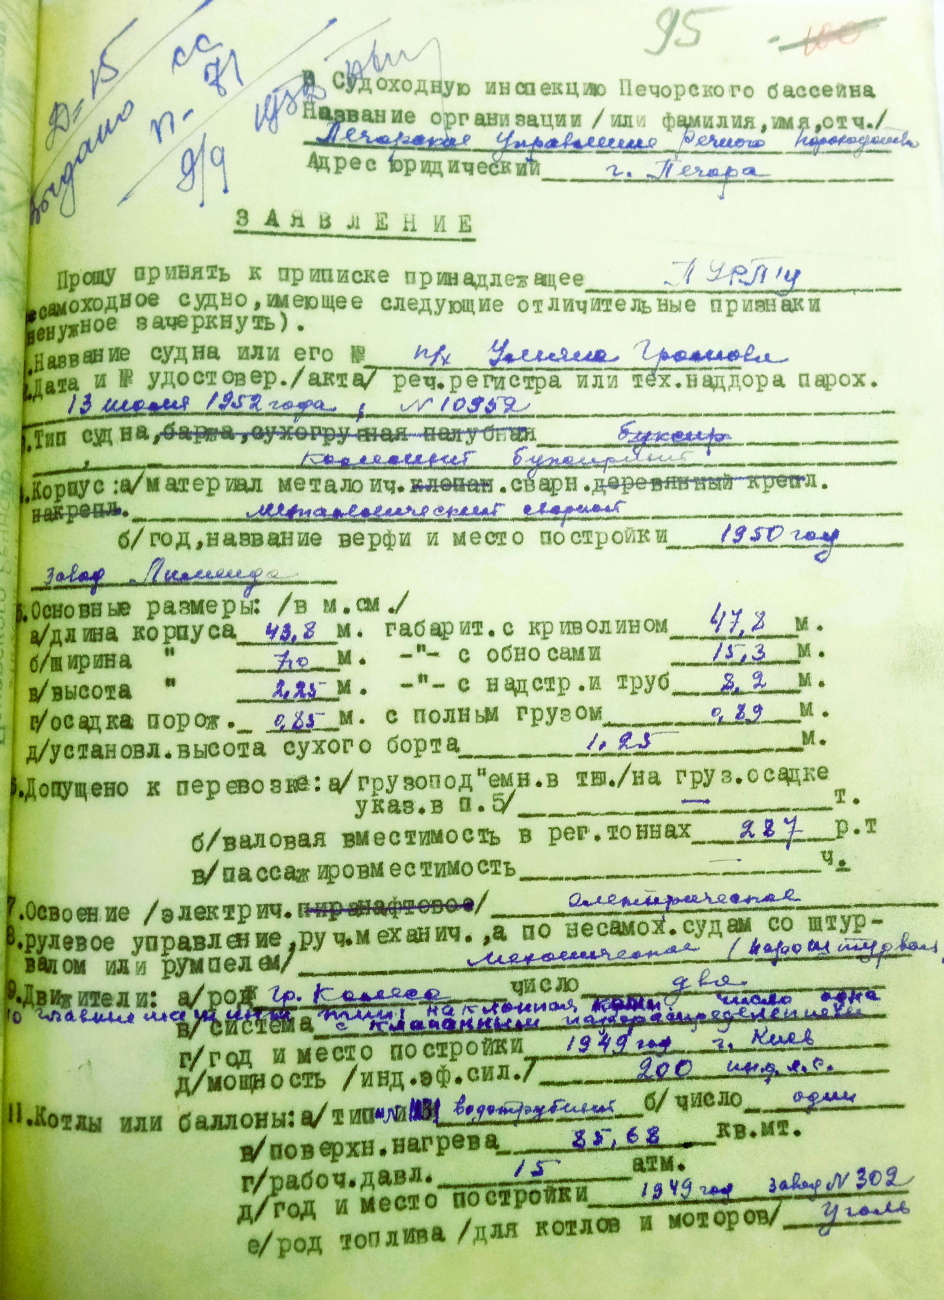 95 100
Д-15
Выдано СС
П-71
9/9
В Судоходную инспекцию Печорского бассейна
Название организации /или фамилия,имя,отч./
Печорское Управление Речного Пароходства
Адрес юридический г. Печора
ЗАЯВЛЕНИЕ
Прошу принять к приписке принадлежащее ПУРП'у
несамоходное судно,имеющее следующие отличительные признаки
ненужное зачеркнуть).
.Название судна или его № п/х Ульяна Громова
.Дата и № удостовер./акта/ реч.регистра или тех.наддора парох.
13 июля 1952 года , N 10952
.Тип судна,баржа,сухогрузная палубная буксир
колесный буксирный
.Корпус:а/материал металоич.клепан.сварн.деревянный крепл.
накрепл. металлический сварной
б/год,название верфи и место постройки 1950 год
завод Лименда
5.Основные размеры: /в м.см./
а/длина корпуса 43,8 м. габарит.с криволином 47,8 м.
б/ширина " 7,0 м. -"- с обносами 15,3 м.
в/высота " 2,25 м. -"- с надстр.и труб 8,2 м.
г/осадка порож. 0,85 м. с полным грузом 0,89 м.
д/установл.высота сухого борта 1,25 м.
6.Допущено к перевозке:а/грузопод"емн.в тн./на груз.осадке
указ.в п.5/ — т.
б/валовая вместимость в рег.тоннах 287 р.т
в/пассажировместимость — ч.
7.Освоение /электрич.пиранафтовое/ электрическое
8.рулевое управление,руч.механич.,а по несамох.судам со штур-
валом или румпелем/ механическое /пароштурвал
9.Движители: а/род гр. Колеса число два
10 Главные машины тип: наклонная число одна
в/система с клапанным парораспределением
г/год и место постройки 1949 год г. Киев
д/мощность /инд.эф.сил./ 200 инд.л.с.
11.Котлы или баллоны:а/тип водотрубный б/число один
в/поверхн.нагрева 85,68 кв.мт.
г/рабоч.давл. 15 атм.
д/год и место постройки 1949 год завод N 302
е/род топлива /для котлов и моторов/ Уголь